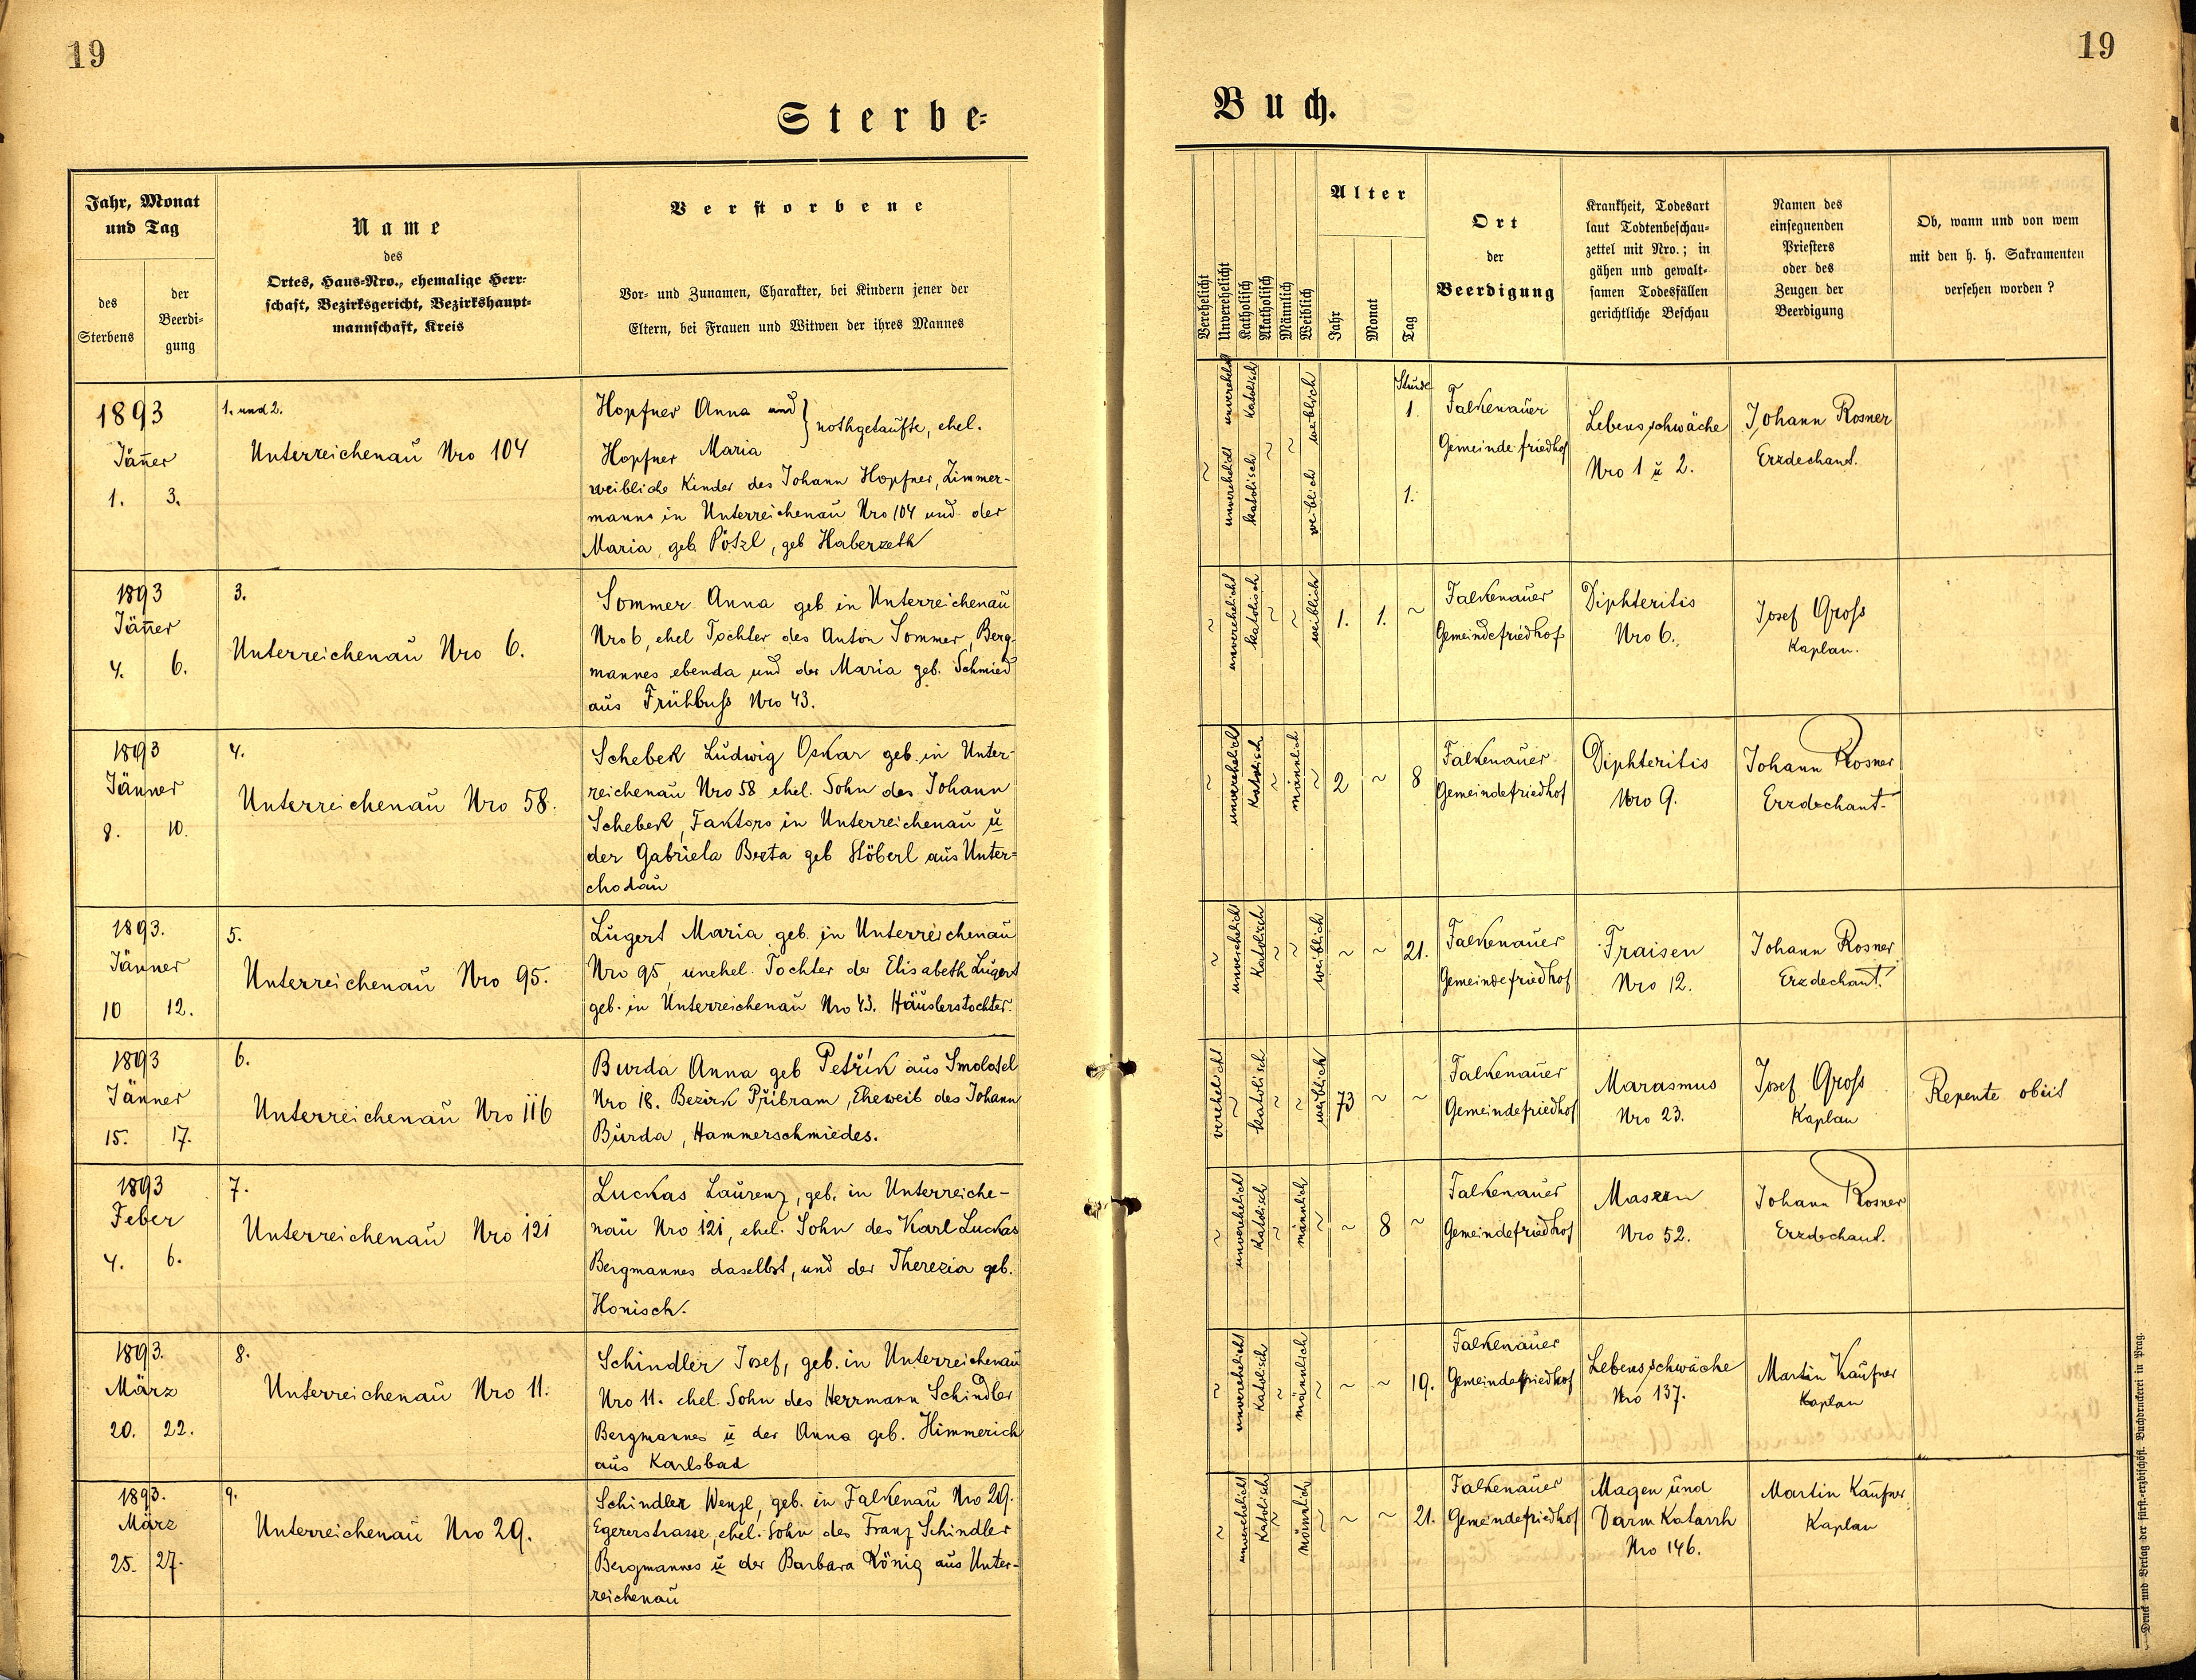 19
19
Sterbe-
Buch.
Jahr, Monat
und Tag
des
Sterbens
der
Beerdi-
gung
Name
des
Ortes, Haus-Nro., ehemalige Herr-
schaft, Bezirksgericht, Bezirkshaupt-
mannschaft, Kreis
Verstorbene
Vor- und Zunamen, Charakter, bei Kindern jener der
Eltern, bei Frauen und Witwen der ihres Mannes
Verehelicht
Unverehelicht
Katholisch
Akatholisch
Männlich
Weiblich
Alter
Jahr
Monat
Tag
Ort
der
Beerdigung
Krankheit, Todesart
laut Todtenbeschau-
zettel mit Nro.; in
gähen und gewalt-
samen Todesfällen
gerichtliche Beschau
Namen des
einsegnenden
Priesters
oder des
Zeugen der
Beerdigung
Ob, wann und von wem
mit den h. h. Sakramenten
versehen worden?
1893
Jäñer
1. 3.
1. und 2.
Unterreichenau Nro 104
Hopfner Anna und
Hopfner Maria } nothgetaufte, ehel.
weibliche Kinder des Johann Hopfner, Zimmer-
manns in Unterreichenau Nro 104 und der
Maria, geb. Pötzl, geb Haberzeth
~ unverehelicht katolisch ~ ~ weiblich
unverehelicht katolisch weiblich
Stunde
1.
1.
Falkenauer
Gemeindefriedhof
Lebensschwäche
Nro 1 u 2.
Johann Rosner
Erzdechant.
1893
Jäñer
4. 6.
3.
Unterreichenau Nro 6.
Sommer Anna geb in Unterreichenau
Nro 6, ehel Tochter des Anton Sommer, Berg-
mannes ebenda und der Maria geb. Schmied
aus Frühbuss Nro 43.
~ unverehelicht katolisch ~ ~ weiblich 1. 1. ~
Falkenauer
Gemeindefriedhof
Diphteritis
Nro 6.
Josef Gross
Kaplan.
1893
Jänner
8. 10.
4.
Unterreichenau Nro 58.
Schebek Ludwig Oskar geb. in Unter-
reichenau Nro 58 ehel. Sohn des Johann
Schebek, Faktors in Unterreichenau u
der Gabriela Berta geb Stöberl aus Unter-
chodau
~ unverehelicht Katolisch ~ männlich ~ 2 ~ 8
Falkenauer
Gemeindefriedhof
Diphteritis
Nro 9.
Johann Rosner
Erzdechant.
1893.
Jänner
10 12.
5.
Unterreichenau Nro 95.
Lugert Maria geb. in Unterreichenau
Nro 95, unehel. Tochter der Elisabeth Lugert
geb. in Unterreichenau Nro 43. Häuslerstochter.
~ unverehelicht Katolisch ~ ~ weiblich ~ ~ 21.
Falkenauer
Gemeindefriedhof
Fraisen
Nro 12.
Johann Rosner
Erzdechant.
1893
Jänner
15. 17.
6.
Unterreichenau Nro 116
Burda Anna geb Petřík aus Smolotel
Nro 18. Bezirk Přibram, Eheweib des Johann
Burda, Hammerschmiedes.
verehelicht ~ katolisch ~ ~ weiblich 73 ~ ~
Falkenauer
Gemeindefriedhof
Marasmus
Nro 23.
Josef Gross
Kaplan
Repente obiit
1893
Feber
4. 6.
7.
Unterreichenau Nro 121
Luckas Laurenz, geb. in Unterreiche-
nau Nro 121, ehel. Sohn des Karl Luckas
Bergmannes daselbst, und der Therezia geb.
Honisch.
~ unverehelicht Katolisch ~ männlich ~ ~ 8 ~
Falkenauer
Gemeindefriedhof
Masern
Nro 52.
Johann Rosner
Erzdechant.
1893.
März
20. 22.
8.
Unterreichenau Nro 11.
Schindler Josef, geb. in Unterreichenau
Nro 11. ehel. Sohn des Herrmann Schindler
Bergmannes u der Anna geb. Himmerich
aus Karlsbad
~ unverehelicht Katolisch ~ männlich ~ ~ ~ 19.
Falkenauer
Gemeindefriedhof
Lebensschwäche
Nro 137.
Martin Kaufner
Kaplan
1893.
März
25. 27.
9.
Unterreichenau Nro 29.
Schindler Wenzl, geb. in Falkenau Nro 29.
Egererstrasse, ehel. Sohn des Franz Schindler
Bergmannes u der Barbara König aus Unter-
reichenau
~ unverehelicht Katolisch ~ männlich ~ ~ ~ 21.
Falkenauer
Gemeindefriedhof
Magen und
Darm Katarrh
Nro 146.
Martin Kaufner
Kaplan
Druck und Verlag der fürst-erzbischöfl. Buchdruckerei in Prag.